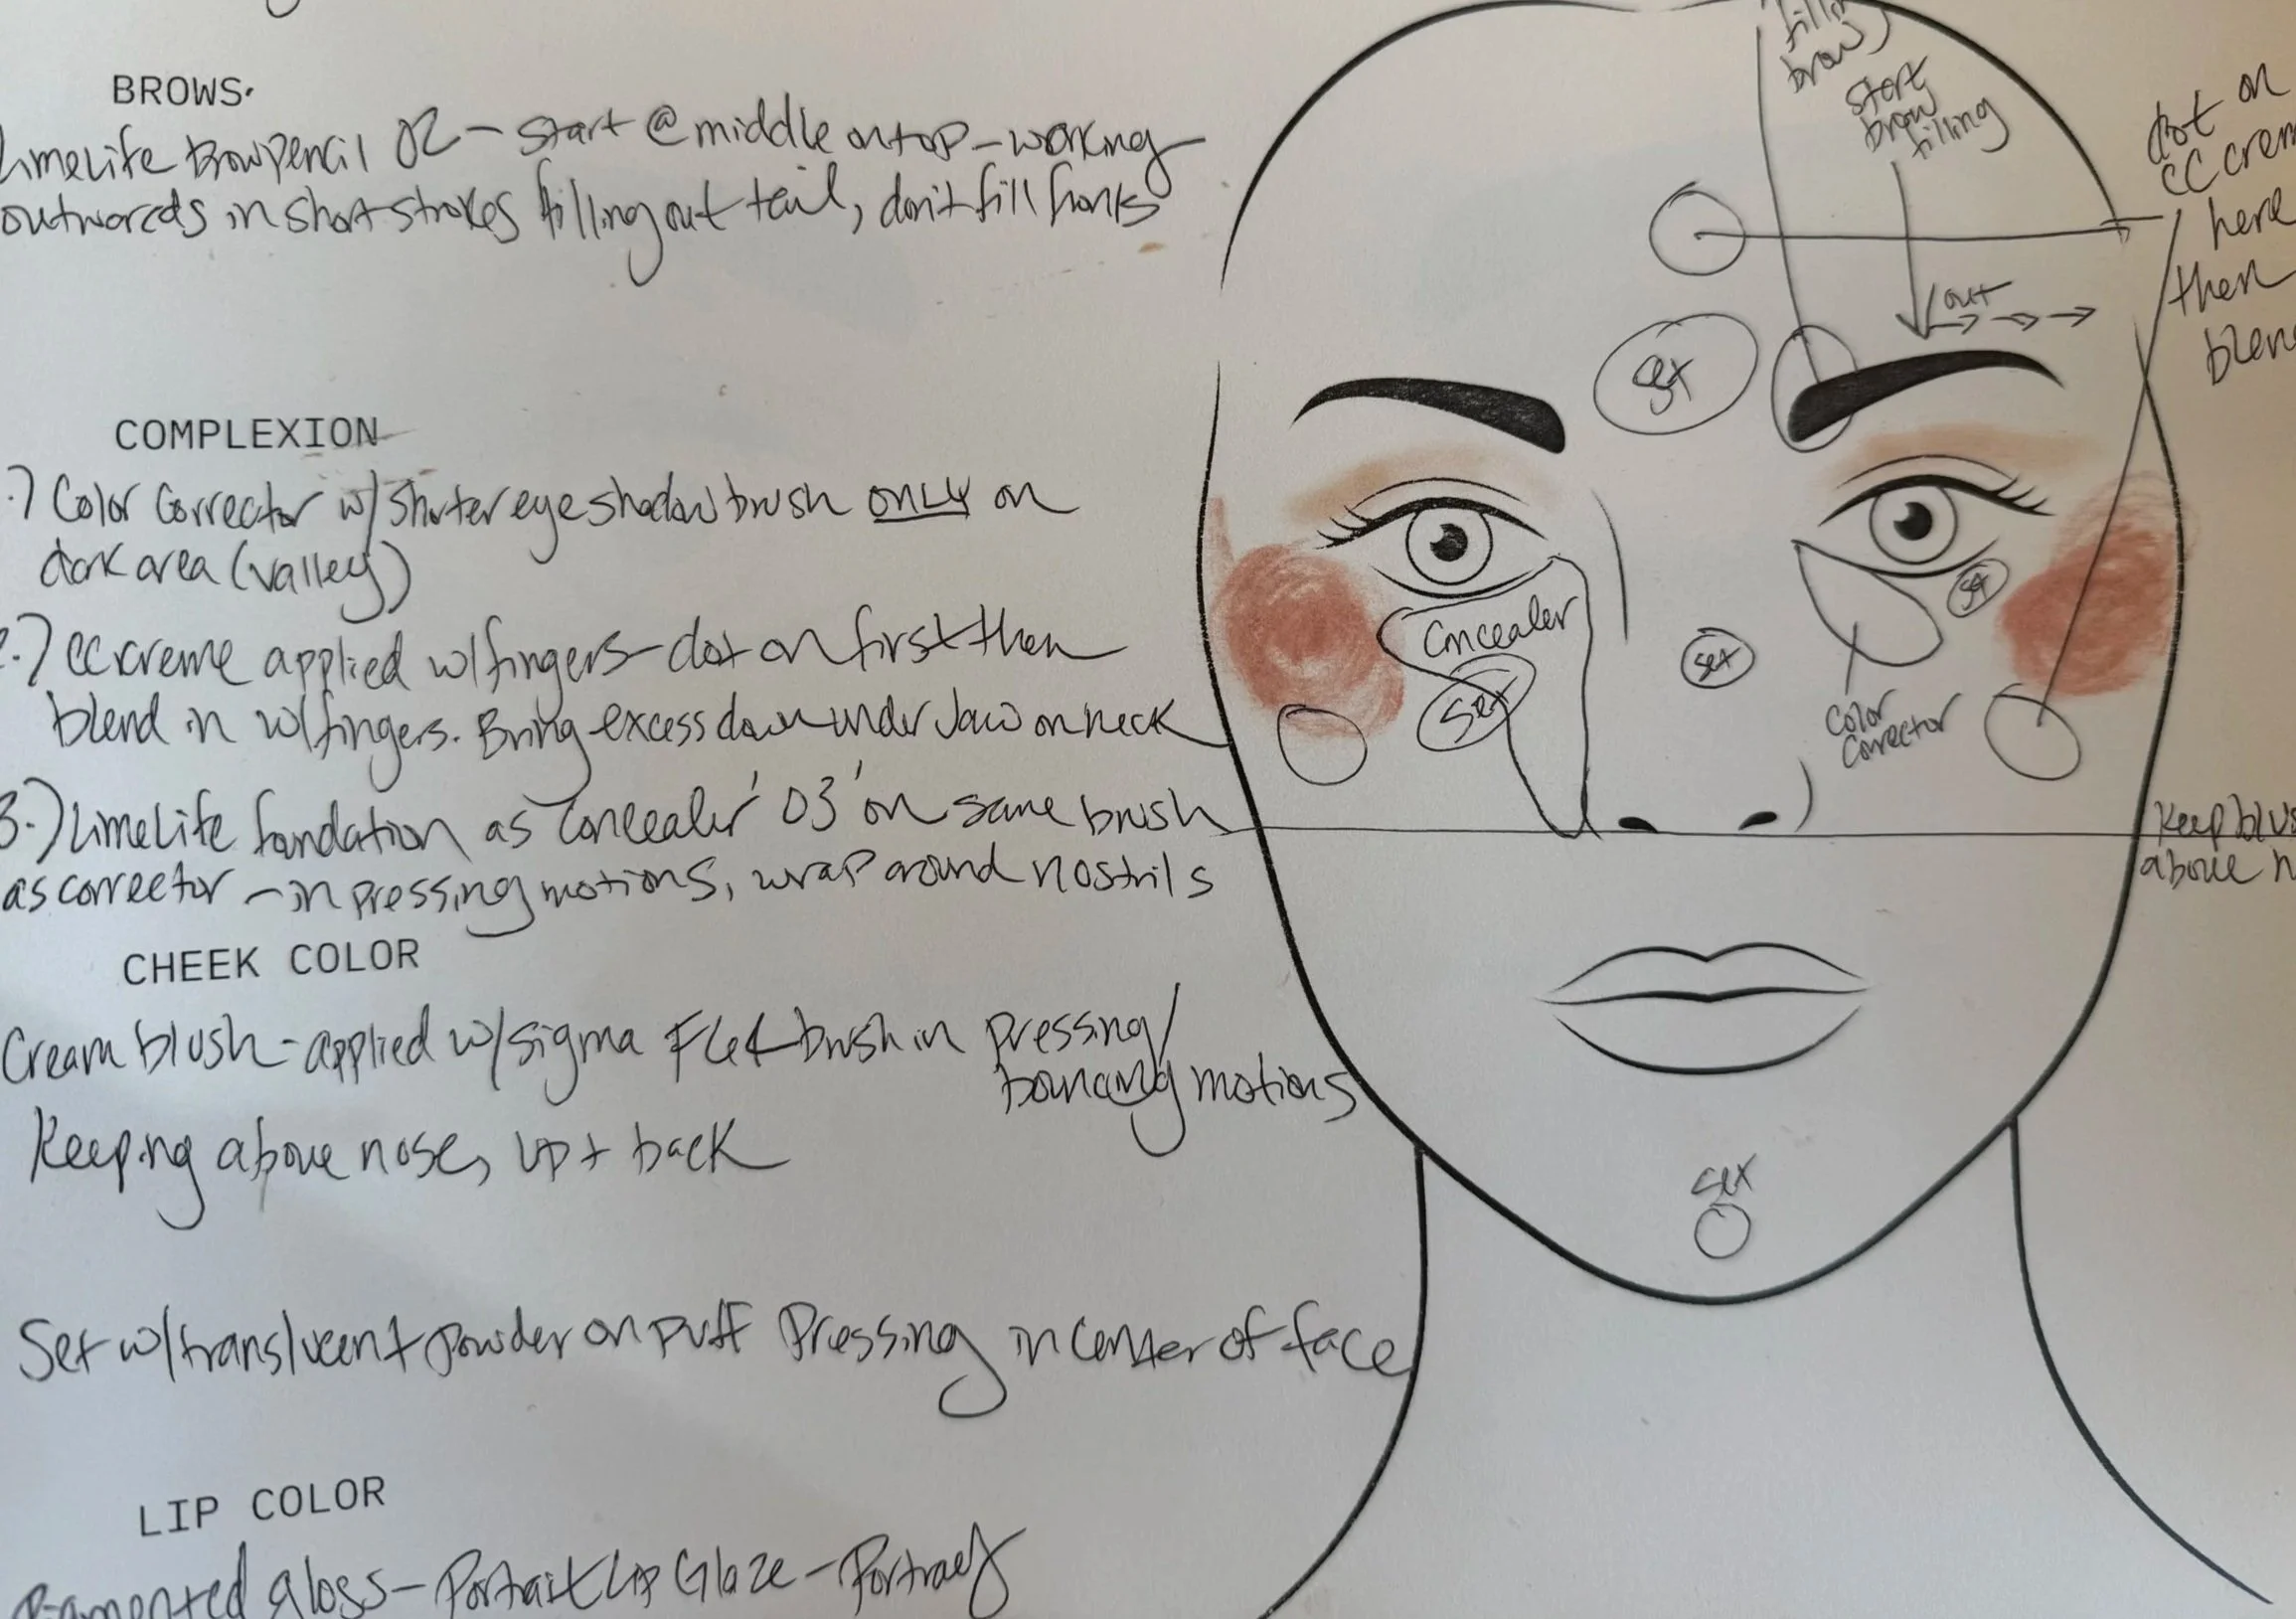 BROWS.
Limelife Brow pencil 02 - start @ middle on top - working
outwards in short strokes filling out tail, don't fill fronts
COMPLEXION
.) Color Corrector w/ shorter eyeshadow brush ONLY on
dark area (valley)
2.) CC creme applied w/ fingers - dot on first then
blend in w/ fingers. Bring excess down under Jaw on neck
3.) Limelife foundation as concealer '03' on same brush
as corrector - in pressing motions, wrap around nostrils
CHEEK COLOR
Cream blush - applied w/ sigma F64 brush in pressing/
bouncing motions
Keeping above nose, up + back
Set w/ translucent powder on puff pressing in center of face
LIP COLOR
Pigmented gloss - Portrait Lip Glaze -
brow)
start
brow
filling
out
dot on
CC crem
here
then
blen
set
Concealer
set
set
set
Color
Corrector
Keep blus
above n
set